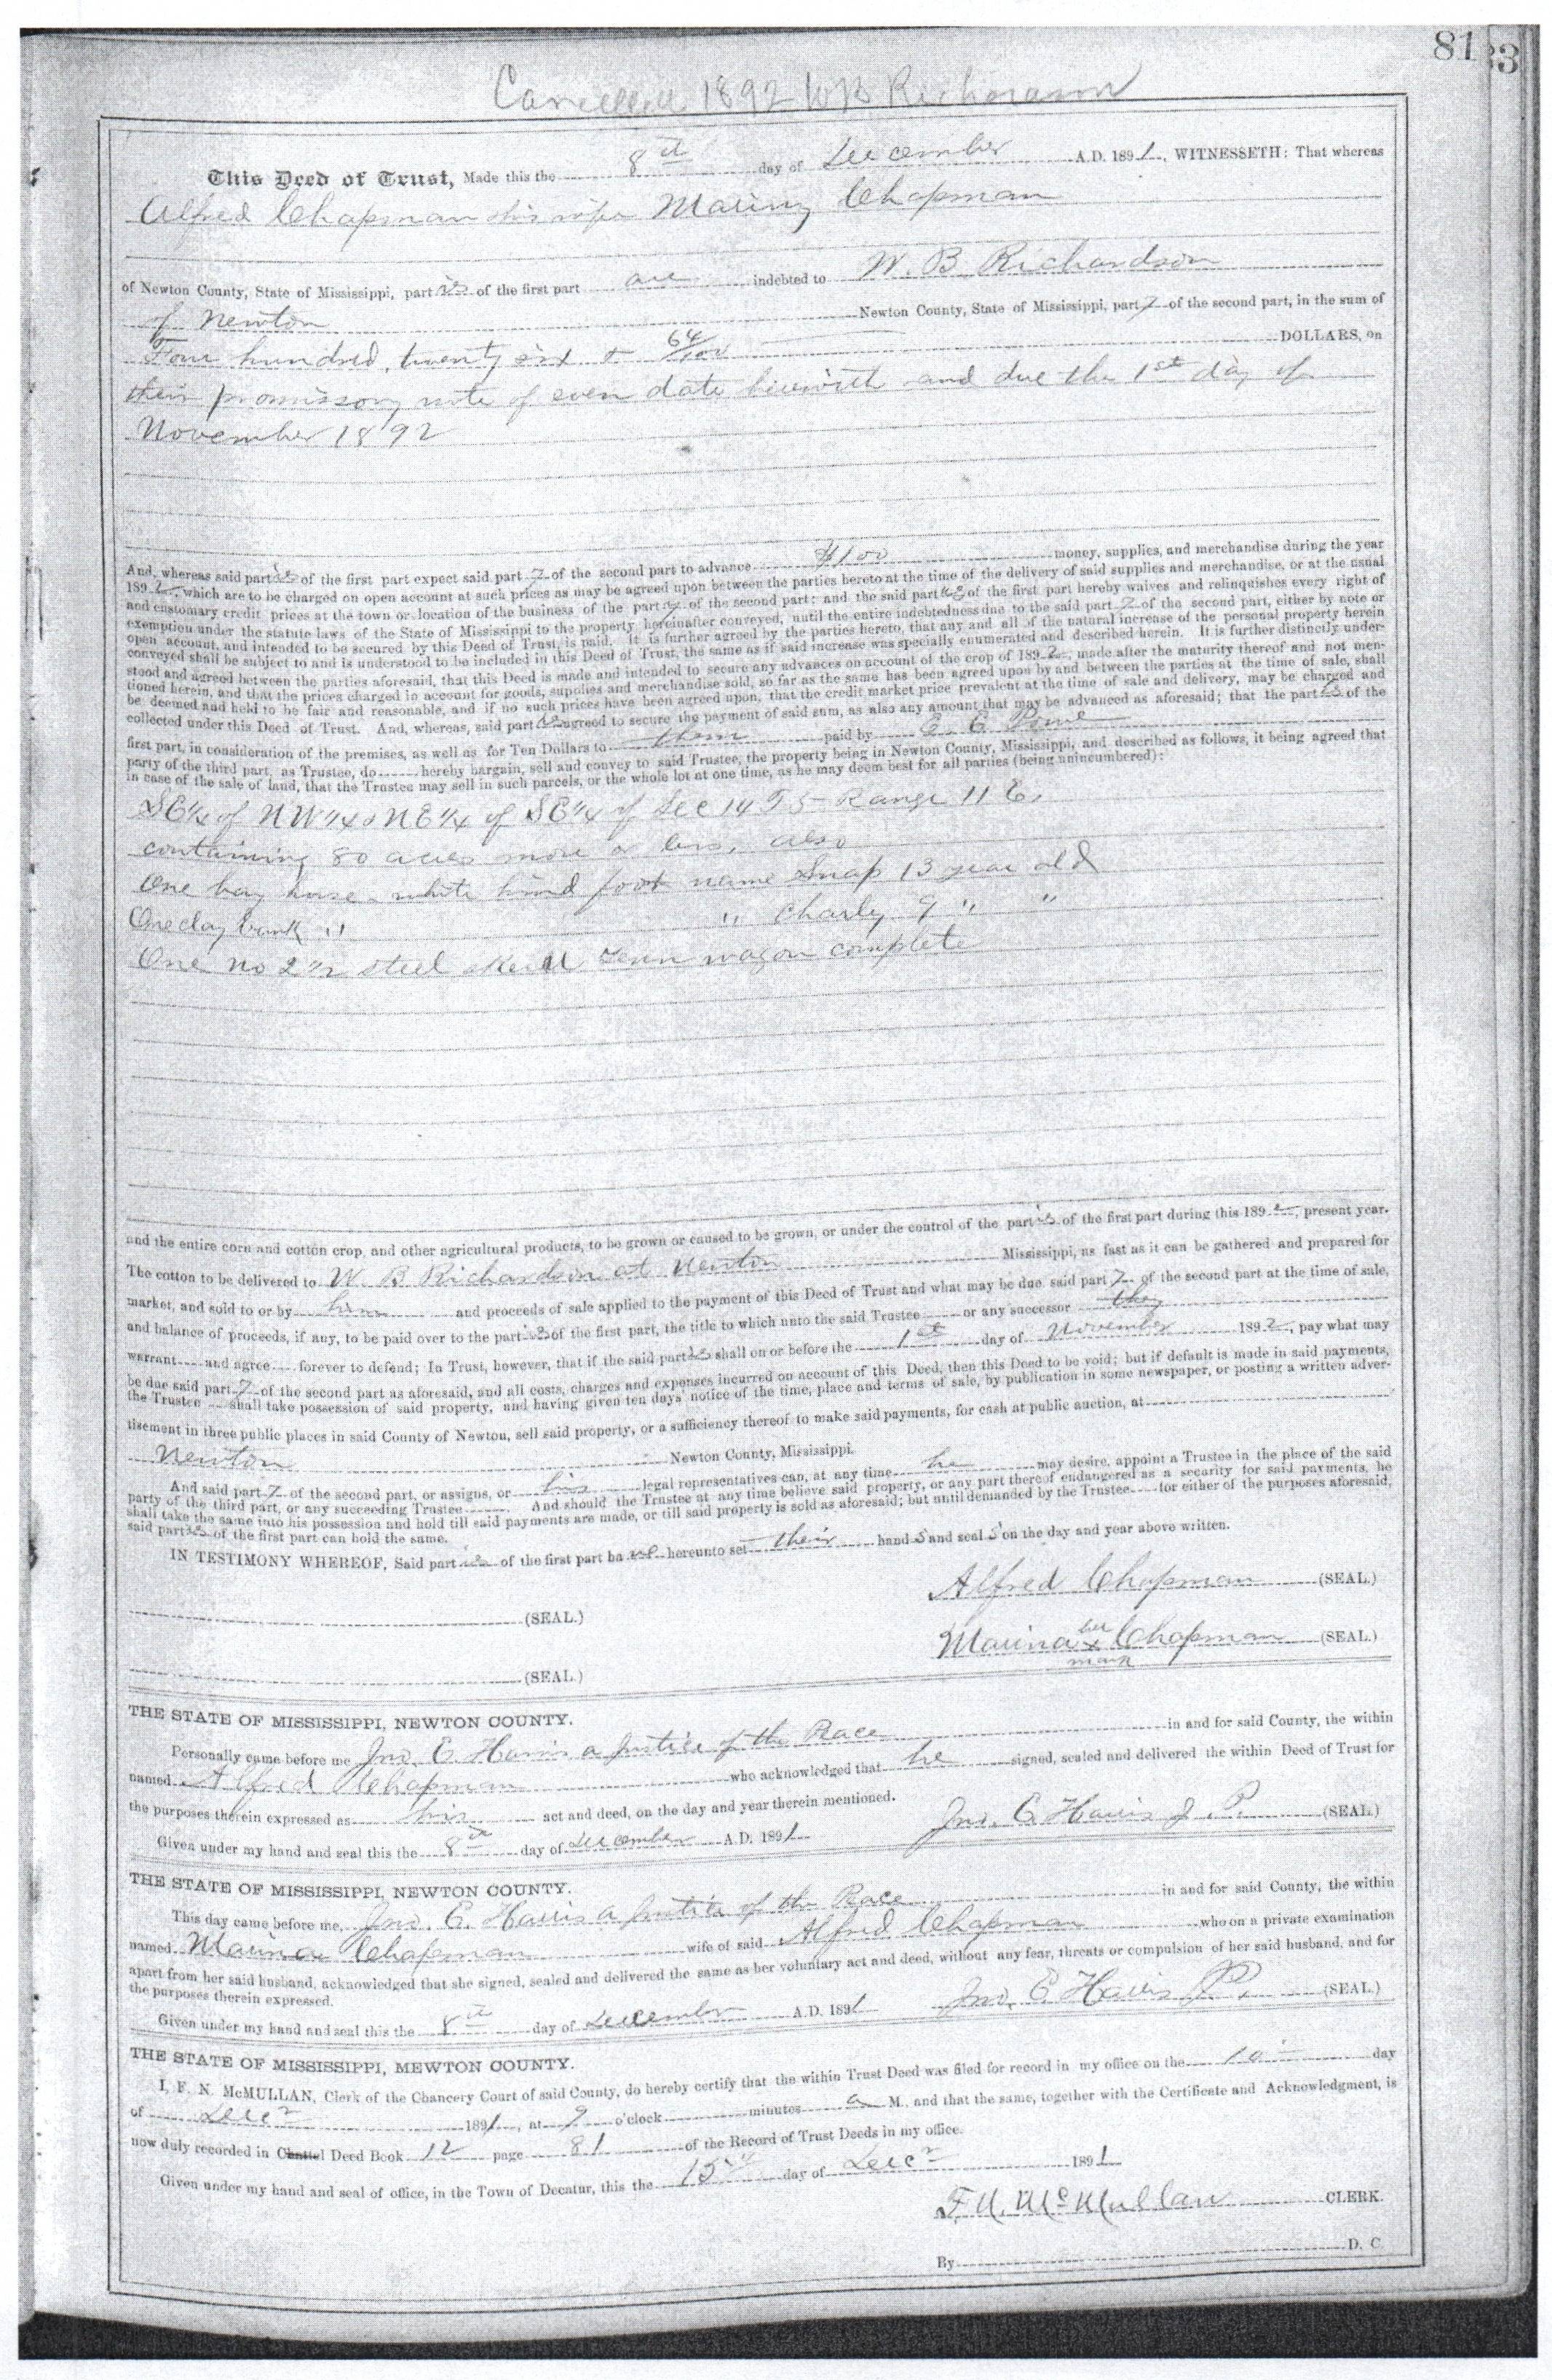 81
33
Cancelled 1892 WB Richardson
This Deed of Trust, Made this the 8th day of December A.D. 1891, WITNESSETH: That whereas
Alfred Chapman & his wife Chapman
of Newton County, State of Mississippi, parties of the first part are indebted to W. B Richardson
of Newton Newton County, State of Mississippi, party of the second part, in the sum of
Four hundred, twenty six & 64/100 DOLLARS, on
their promissory note of even date herewith and due the 1st day of
November 1892
And, whereas said parties of the first part expect said party of the second part to advance $100 money, supplies, and merchandise during the year
1892, which are to be charged on open account at such prices as may be agreed upon between the parties hereto at the time of the delivery of said supplies and merchandise, or at the usual
and customary credit prices at the town or location of the business of the party of the second part; and the said parties of the first part hereby waives and relinquishes every right of
exemption under the statute laws of the State of Mississippi to the property hereinafter conveyed, until the entire indebtedness due to the said party of the second part, either by note or
open account, and intended to be secured by this Deed of Trust, is paid. It is further agreed by the parties hereto, that any and all of the natural increase of the personal property herein
conveyed shall be subject to and is understood to be included in this Deed of Trust, the same as if said increase was specially enumerated and described herein. It is further distinctly under-
stood and agreed between the parties aforesaid, that this Deed is made and intended to secure any advances on account of the crop of 1892, made after the maturity thereof and not men-
tioned herein, and that the prices charged in account for goods, supplies and merchandise sold, so far as the same has been agreed upon by and between the parties at the time of sale, shall
be deemed and held to be fair and reasonable, and if no such prices have been agreed upon, that the credit market price prevalent at the time of sale and delivery, may be charged and
collected under this Deed of Trust. And, whereas, said parties agreed to secure the payment of said sum, as also any amount that may be advanced as aforesaid; that the parties of the
first part, in consideration of the premises, as well as for Ten Dollars to them paid by E. E.
party of the third part, as Trustee, do hereby bargain, sell and convey to said Trustee, the property being in Newton County, Mississippi, and described as follows, it being agreed that
in case of the sale of land, that the Trustee may sell in such parcels, or the whole lot at one time, as he may deem best for all parties (being unincumbered):
SE¼ of NW¼ & NE¼ of SE¼ of Sec 14 T5 Range 11 E.
containing 80 acres more or less, also
One bay horse white hind foot name Snap 13 year old
One clay bank " " Charly 9 " "
One no 2½ steel Tenn wagon complete
and the entire corn and cotton crop, and other agricultural products, to be grown or caused to be grown, or under the control of the parties of the first part during this 1892, present year.
The cotton to be delivered to W. B Richardson at Newton Mississippi, as fast as it can be gathered and prepared for
market, and sold to or by him and proceeds of sale applied to the payment of this Deed of Trust and what may be due said party of the second part at the time of sale,
and balance of proceeds, if any, to be paid over to the parties of the first part, the title to which unto the said Trustee or any successor they
warrant and agree forever to defend; In Trust, however, that if the said parties shall on or before the 1st day of November 1892, pay what may
be due said party of the second part as aforesaid, and all costs, charges and expenses incurred on account of this Deed, then this Deed to be void; but if default is made in said payments,
the Trustee shall take possession of said property, and having given ten days' notice of the time, place and terms of sale, by publication in some newspaper, or posting a written adver-
tisement in three public places in said County of Newton, sell said property, or a sufficiency thereof to make said payments, for cash at public auction, at
Newton Newton County, Mississippi.
And said party of the second part, or assigns, or his legal representatives can, at any time he may desire, appoint a Trustee in the place of the said
party of the third part, or any succeeding Trustee. And should the Trustee at any time believe said property, or any part thereof endangered as a security for said payments, he
shall take the same into his possession and hold till said payments are made, or till said property is sold as aforesaid; but until demanded by the Trustee for either of the purposes aforesaid,
said parties of the first part can hold the same.
IN TESTIMONY WHEREOF, Said parties of the first part have hereunto set their hands and seals on the day and year above written.
Alfred Chapman (SEAL.)
(SEAL.)
Maurina her x mark Chapman (SEAL.)
(SEAL.)
THE STATE OF MISSISSIPPI, NEWTON COUNTY.
Personally came before me Jno. C. Harris a Justice of the Peace in and for said County, the within
named Alfred Chapman who acknowledged that he signed, sealed and delivered the within Deed of Trust for
the purposes therein expressed as his act and deed, on the day and year therein mentioned.
Given under my hand and seal this the 8th day of December A.D. 1891 Jno. C. Harris J. P. (SEAL.)
THE STATE OF MISSISSIPPI, NEWTON COUNTY.
This day came before me, Jno. C. Harris a Justice of the Peace in and for said County, the within
named Maurina Chapman wife of said Alfred Chapman who on a private examination
apart from her said husband, acknowledged that she signed, sealed and delivered the same as her voluntary act and deed, without any fear, threats or compulsion of her said husband, and for
the purposes therein expressed.
Given under my hand and seal this the 8th day of December A.D. 1891 Jno. C. Harris JP. (SEAL.)
THE STATE OF MISSISSIPPI, MEWTON COUNTY.
I, F. N. McMULLAN, Clerk of the Chancery Court of said County, do hereby certify that the within Trust Deed was filed for record in my office on the 10 day
of Decr 1891, at 9 o'clock minutes a M., and that the same, together with the Certificate and Acknowledgment, is
now duly recorded in Chattel Deed Book 12 page 81 of the Record of Trust Deeds in my office.
Given under my hand and seal of office, in the Town of Decatur, this the 15th day of Decr 1891
F. N. McMullan CLERK.
By D. C.